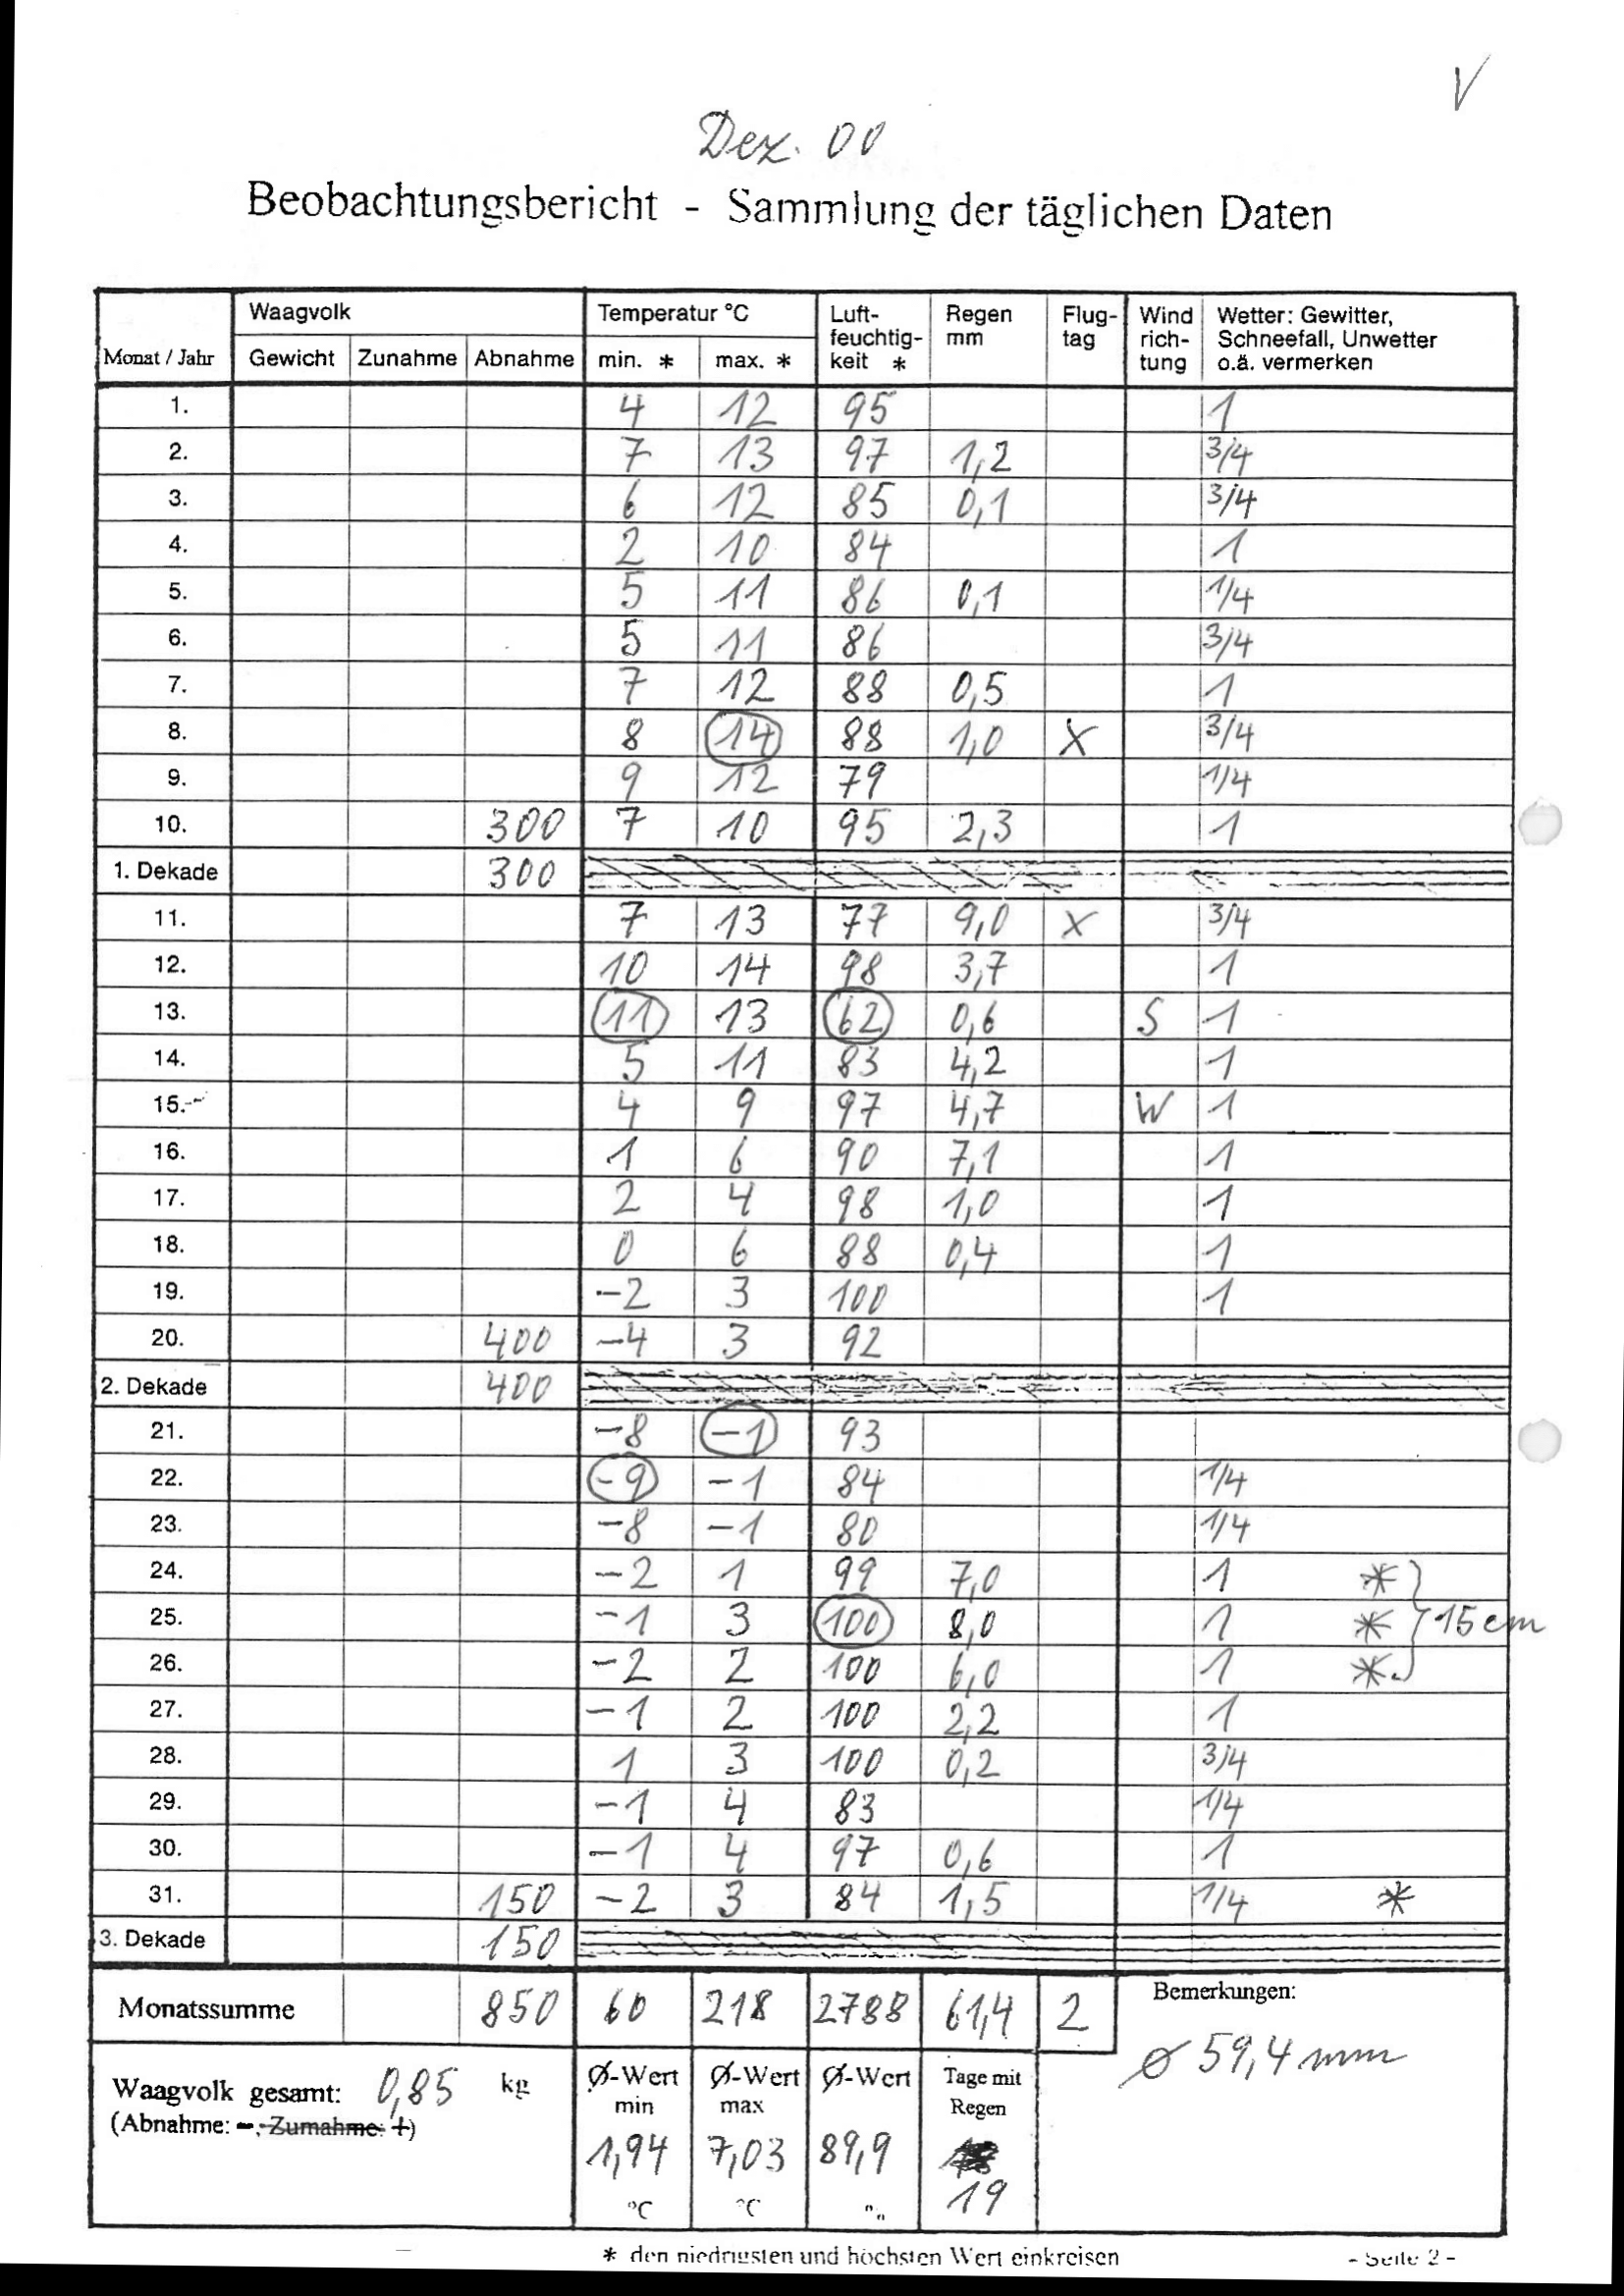 V
Dez. 00
Beobachtungsbericht - Sammlung der täglichen Daten
Monat / Jahr Waagvolk Temperatur °C Luft-feuchtig-keit * Regen mm Flug-tag Wind rich-tung Wetter: Gewitter, Schneefall, Unwetter o.ä. vermerken
Gewicht Zunahme Abnahme min. * max. *
1. 4 12 95 1
2. 7 13 97 1,2 3/4
3. 6 12 85 0,1 3/4
4. 2 10 84 1
5. 5 11 86 0,1 1/4
6. 5 11 86 3/4
7. 7 12 88 0,5 1
8. 8 14 88 1,0 X 3/4
9. 9 12 79 1/4
10. 300 7 10 95 2,3 1
1. Dekade 300
11. 7 13 77 9,0 X 3/4
12. 10 14 98 3,7 1
13. 11 13 62 0,6 S 1
14. 5 11 83 4,2 1
15. 4 9 97 4,7 W 1
16. 1 6 90 7,1 1
17. 2 4 98 1,0 1
18. 0 6 88 0,4 1
19. -2 3 100 1
20. 400 -4 3 92
2. Dekade 400
21. -8 -1 93
22. -9 -1 84 1/4
23. -8 -1 80 1/4
24. -2 1 99 7,0 1 *
25. -1 3 100 8,0 1 * } 15 cm
26. -2 2 100 6,0 1 *
27. -1 2 100 2,2 1
28. 1 3 100 0,2 3/4
29. -1 4 83 1/4
30. -1 4 97 0,6 1
31. 150 -2 3 84 1,5 1/4 *
3. Dekade 150
Monatssumme 850 60 218 2788 61,4 2 Bemerkungen:
Ø 59,4 mm
Waagvolk gesamt: 0,85 kg Ø-Wert min Ø-Wert max Ø-Wert Tage mit Regen
(Abnahme: -, Zumahme: +)
1,94 7,03 89,9
°C °C 19
* den niedrigsten und höchsten Wert einkreisen - Seite 2 -